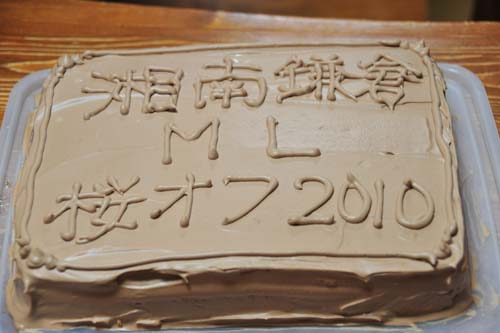 湘南鎌倉
ML
桜オフ2010